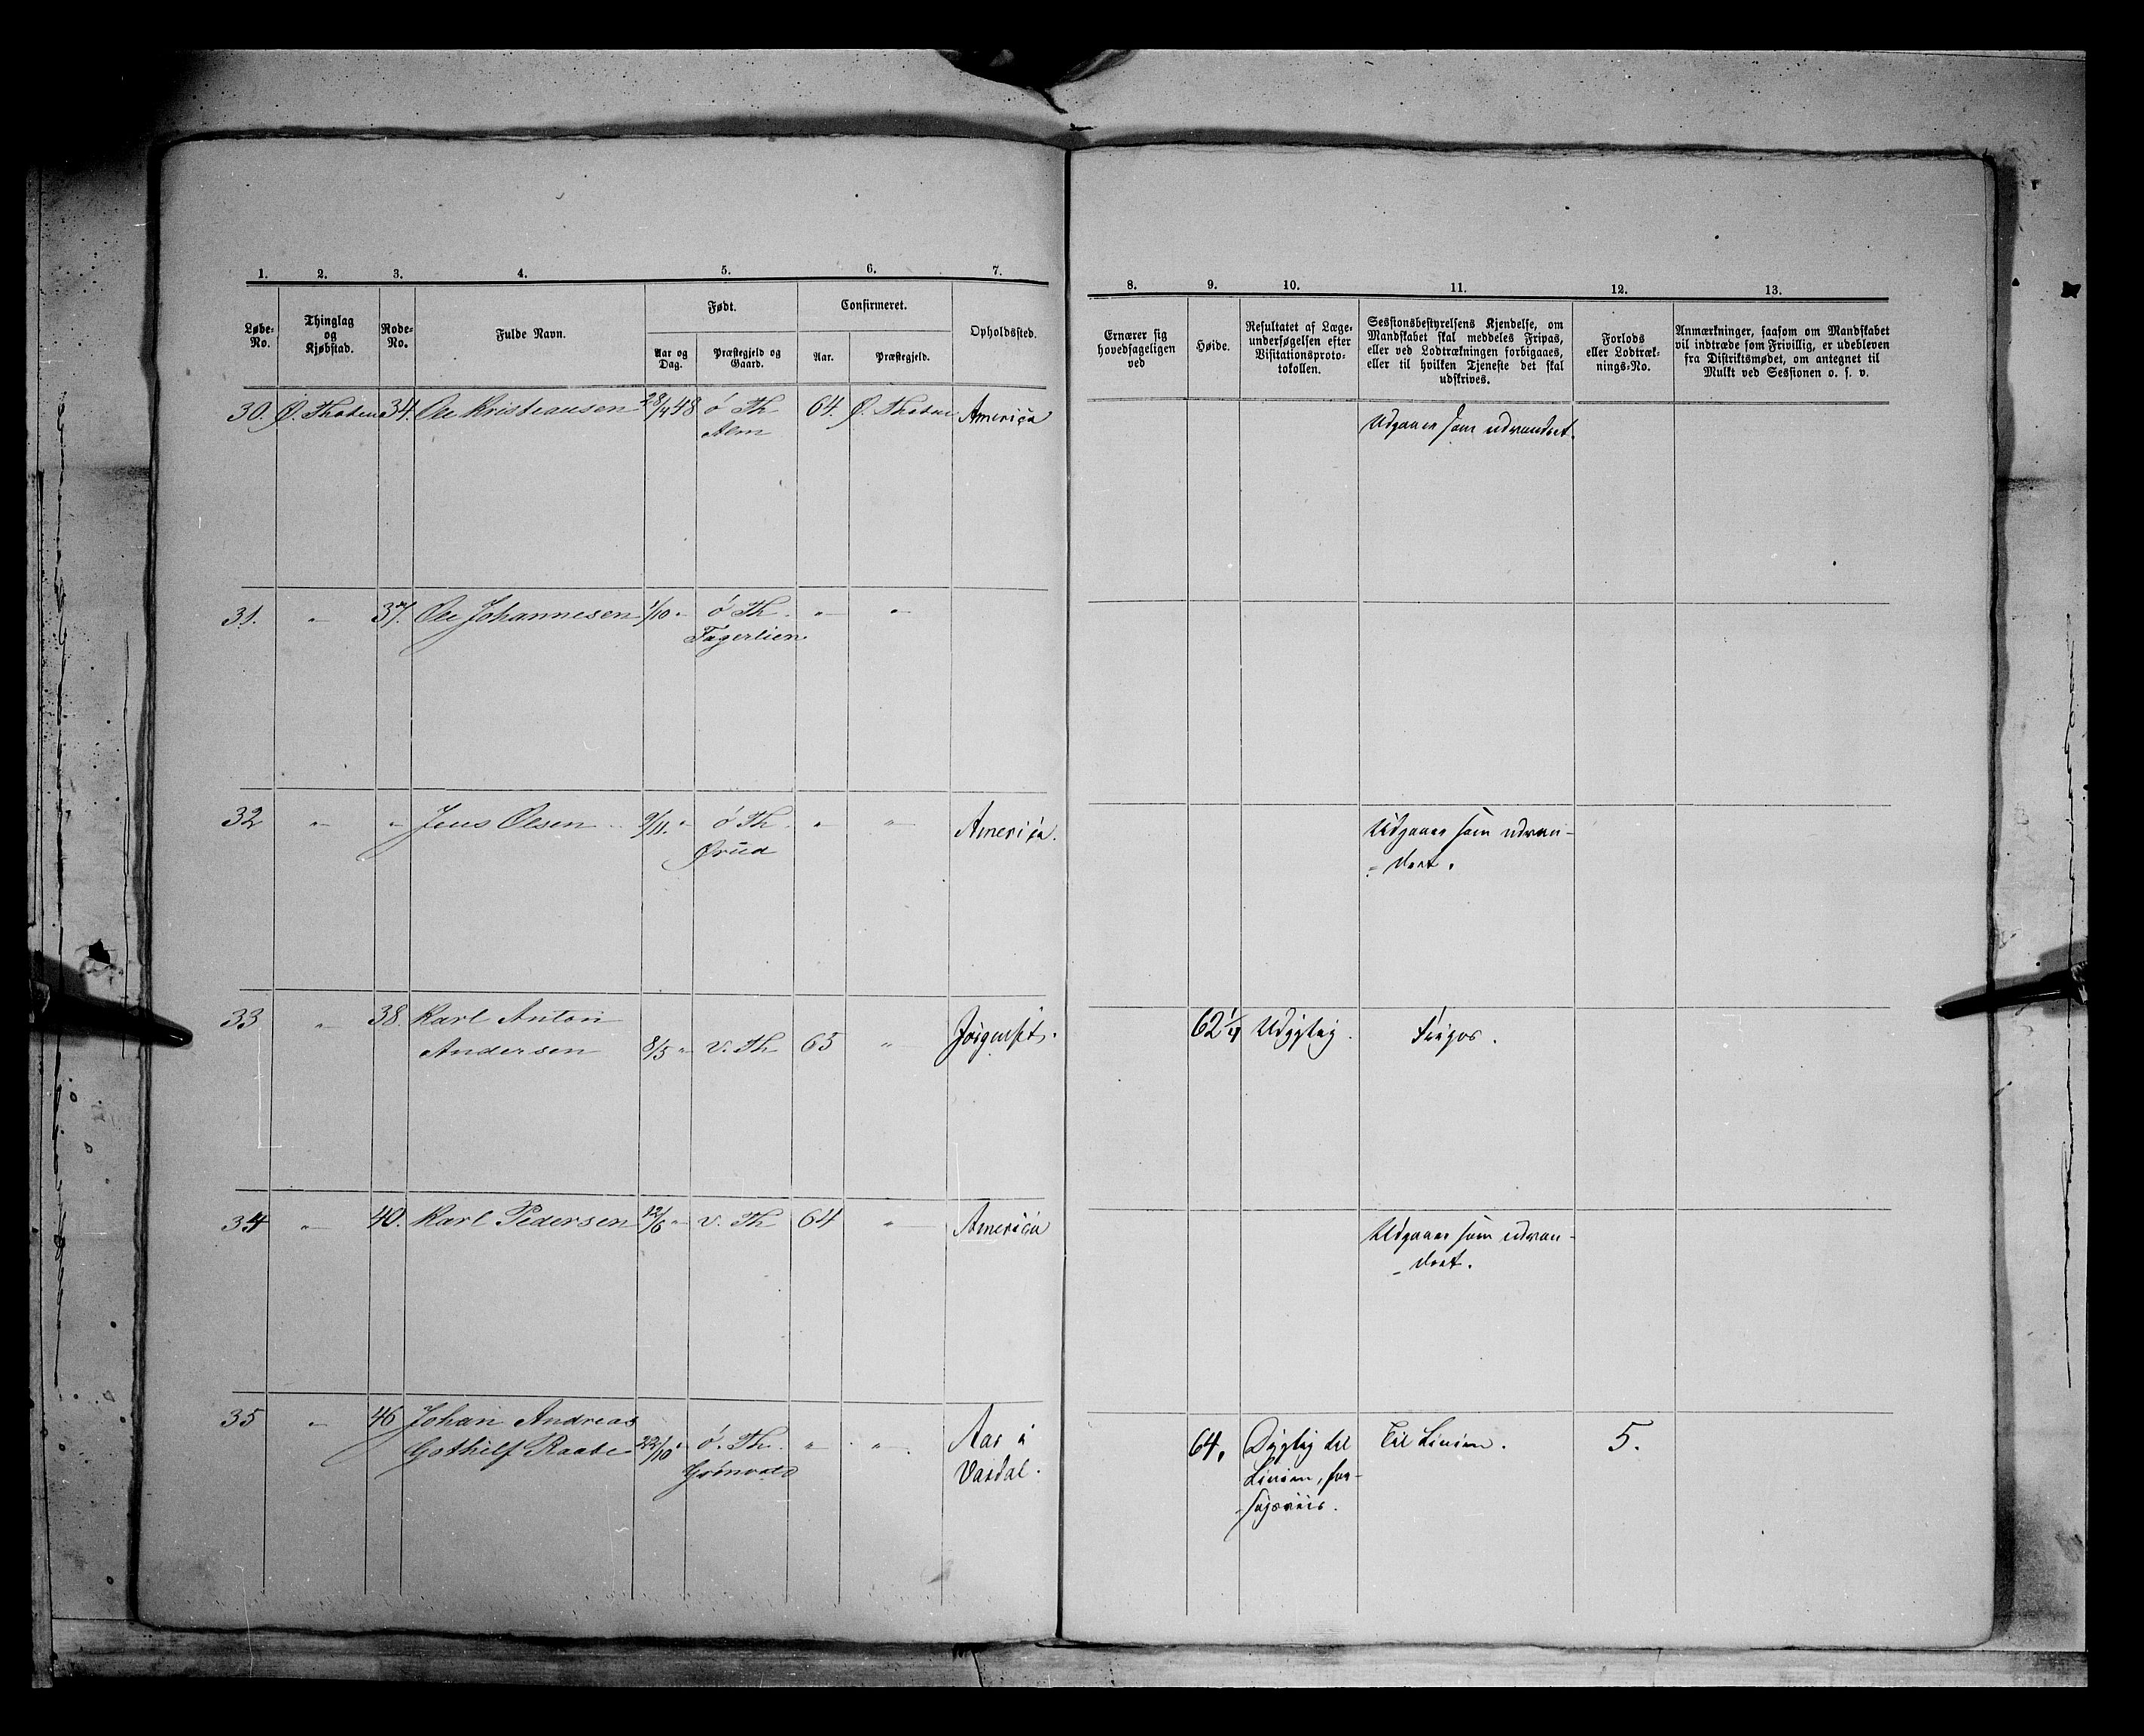 1. 2. 3. 4. 5. 6. 7.
Løbe-No. Thinglag og Kjøbstad. Rode-No. Fulde Navn. Født. Aar og Dag. Præstegjeld og Gaard. Confirmeret. Aar. Præstegjeld. Opholdssted.
8. 9. 10. 11. 12. 13.
Ernærer sig hovedsageligen ved
Høide.
Resultatet af Læge-
undersøgelsen efter
Visitationsproto-
tokollen.
Sessionsbestyrelsens Kjendelse, om
Mandskabet skal meddeles Fripas,
eller ved Lodtrækningen forbigaaes,
eller til hvilken Tjeneste det skal
udskrives.
Forlods
eller Lodtræk-
nings-No.
Anmærkninger, saasom om Mandskabet
vil indtræde som Frivillig, er udebleven
fra Distriktsmødet, om antegnet til
Mulkt ved Sessionen o. s. v.
30. Ø. Thoten 34. Ole Kristiansen 28/4 48 ø Th 64. Ø. Thoten America Udgaaer som udvandret.
Alm
31. " 37. Ole Johannesen 1/10 " ø Th " "
Fagerlien
32 " " Jens Olsen 9/11. " ø Th " " America. Udgaaer som udvan-
Ørud = dret.
33 " 38. Karl Anton
Andersen 8/5 " v. Th 65 " Jørgenset. 62 1/4 Udygtig. Fripas.
34 " 40. Karl Pedersen 12/6 " v. Th 64 " America Udgaaer som udvan-
- dret.
35 " 46 Johan Andreas
Gothilf Raabe 22/10 " ø. Th. " " Aas i 64. Dygtig til Til Linien. 5.
Grønvold Vardal. Linien, for-
-søgsviis.